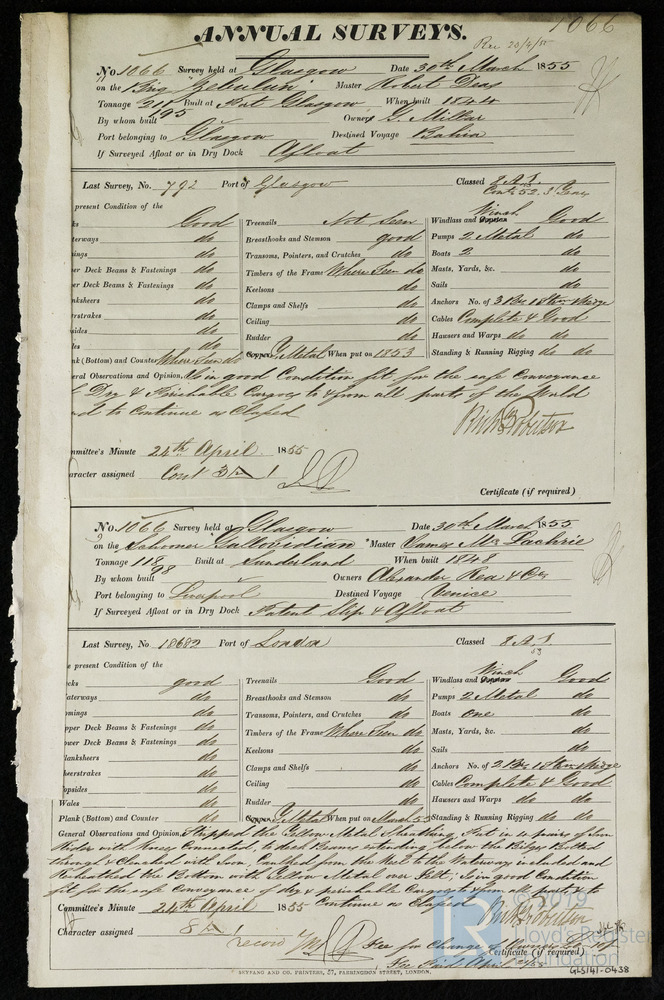 1066
ANNUAL SURVEYS.
Rec 20/4/55
No 1066 Survey held at Glasgow Date 30th March 1855
on the Brig Zebulun Master Robert Deas
Tonnage 211 Built at Port Glasgow When built 1844
195
By whom built Owners G. Millar
Port belonging to Glasgow Destined Voyage Bahia
If Surveyed Afloat or in Dry Dock Afloat
Last Survey, No. 792 Port of Glasgow Classed 8 A.1.
Cont 52. 3 Years
present Condition of the
Winch
Good Treenails Not Seen Windlass and Capstan Good
terways do Breasthooks and Stemson good Pumps 2 Metal do
mings do Transoms, Pointers, and Crutches do Boats 2 do
per Deck Beams & Fastenings do Timbers of the Frame Where Seen do Masts, Yards, &c. do
er Deck Beams & Fastenings do Keelsons do Sails do
nksheers do Clamps and Shelfs do Anchors No. of 3 Br. 1 Strm & Kedge
erstrakes do Ceiling do Cables Complete & Good
sides do Rudder do Hawsers and Warps do do
les do
nk (Bottom) and Counter Where Seen do Copper Y. Metal When put on 1853 Standing & Running Rigging do do
eral Observations and Opinion, Is in good Condition fit for the safe Conveyance
of Dry & Perishable Cargoes to & from all parts of the World
and to Continue as Classed
Richd Robertson
mmittee's Minute 24th April 1855
aracter assigned Cont 3
Certificate (if required)
No. 1066 Survey held at Glasgow Date 30th March 1855
on the Schooner Gallovidian Master James Mc Kachrie
Tonnage 118 Built at Sunderland When built 1848
98
By whom built Owners Alexander Rea & Co
Port belonging to Liverpool Destined Voyage Venice
If Surveyed Afloat or in Dry Dock Patent Slip & Afloat
Last Survey, No 18682 Port of London Classed 8 A.1.
53
e present Condition of the
Winch
cks good Treenails Good Windlass and Capstan Good
aterways do Breasthooks and Stemson do Pumps 2 Metal do
mings do Transoms, Pointers, and Crutches do Boats One do
pper Deck Beams & Fastenings do Timbers of the Frame Where Seen do Masts, Yards, &c. do
ower Deck Beams & Fastenings do Keelsons do Sails do
lanksheers do Clamps and Shelfs do Anchors No. of 2 Br. 1 Strm & Kedge
heerstrakes do Ceiling do Cables Complete & Good
opsides do Rudder do Hawsers and Warps do do
Wales do
Plank (Bottom) and Counter do Copper Y. Metal When put on March 55 Standing & Running Rigging do do
General Observations and Opinion, Stripped the Yellow Metal Sheathing Put in 4 pairs of Iron
Rider with Knees Connected, to deck Beams extending below the Bilge, Bolted
through & Clenched with Iron, Caulked from the Keel to the Waterways included and
Resheathed the Bottom with Yellow Metal over Felt; Is in good Condition
fit for the safe Conveyance of dry & perishable Cargoes to & from all parts & to
Continue as Classed
Richd Robertson
Committee's Minute 24th April 1855
Character assigned 8
record
Fee for Change of Owners
Certificate (if required)
Fee Paid April 24/55
SEYFANG AND CO. PRINTERS, 57, FARRINGDON STREET, LONDON.
© 2019
Lloyd's Register
Foundation
GLS/41-0438